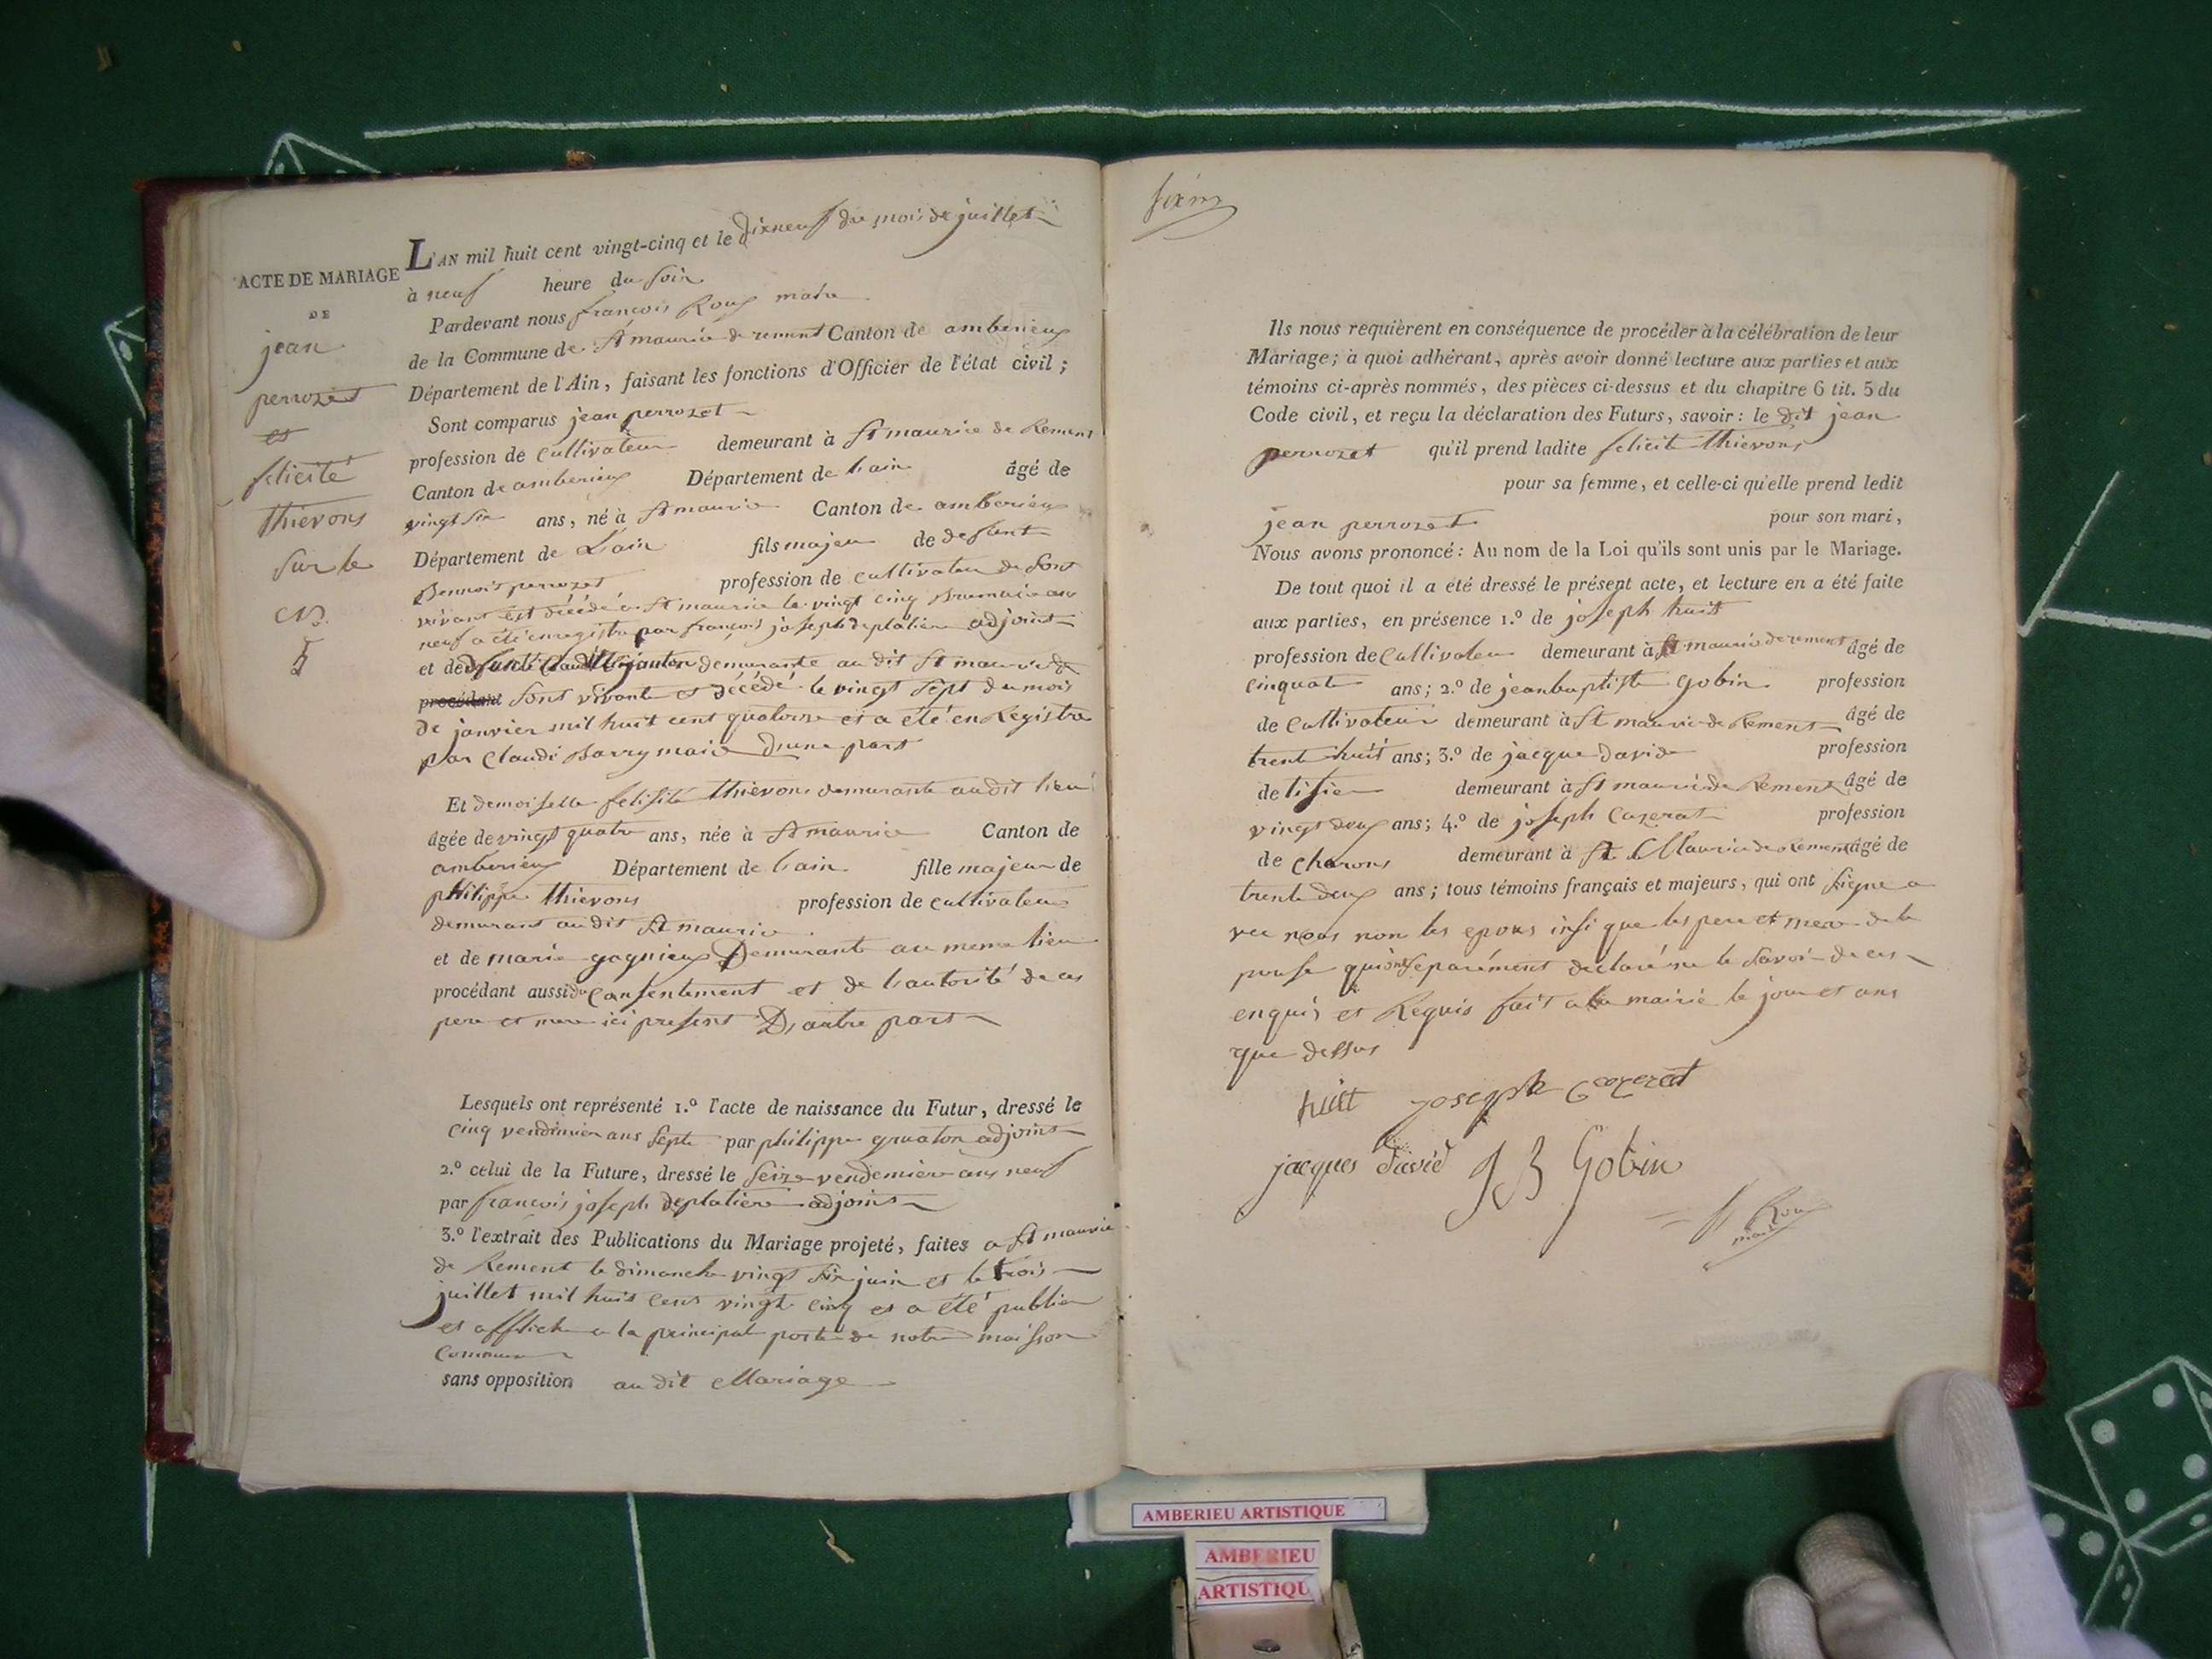 L'AN mil huit cent vingt-cinq et le dixneuf du mois de juillet
ACTE DE MARIAGE
DE
jean
perrozet
et
felicité
thievons
sur le
N.
5
à neuf heure du soir
Pardevant nous françois Roux maire
de la Commune de St maurice de rement Canton de amberieux
Département de l'Ain, faisant les fonctions d'Officier de l'état civil;
Sont comparus jean perrozet
profession de cultivateur demeurant à St maurice de Remens
Canton de amberieux Département de lain âgé de
vingt six ans, né à St maurice Canton de amberieux
Département de Lain fils majeur de defunt
Bennoit perrozet profession de cultivateur de sont
vivant est décédé a St maurice le vingt cinq Brumaire an
neuf a été enregistre par françois joseph deplatière adjoint
et de defunte demurante au dit St maurice de
procédant sont vivante et décédé le vingt sept du mois
de janvier mil huit cent quatorze et a été en Registre
par Claude Barry maire d'une part
Et demoiselle felisité thievons demurante au dit lieu
âgée de vingt quatre ans, née à St maurice Canton de
amberieux Département de lain fille majeur de
philippe thievons profession de cultivateur
demurant au dit St maurice
et de marie gagnieux Demurante au meme lieu
procédant aussi du Consentement et de l'autorité de ces
pere et mere ici present D'autre part
Lesquels ont représenté 1.º l'acte de naissance du Futur, dressé le
cinq vendimier ans sept par philippe gruaton adjoint
2.º celui de la Future, dressé le seize vendemiere ans neuf
par françois joseph deplatiere adjoint
3.º l'extrait des Publications du Mariage projeté, faites a St maurice
de Rement le dimanche vingt six juin et le trois
juillet mil huit cent vingt cinq et a été publier
et afficher a la principal porte de notre maison
Commune
sans opposition au dit Mariage
Ils nous requièrent en conséquence de procéder à la célébration de leur
Mariage; à quoi adhérant, après avoir donné lecture aux parties et aux
témoins ci-après nommés, des pièces ci-dessus et du chapitre 6 tit. 5 du
Code civil, et reçu la déclaration des Futurs, savoir: le dit jean
perrozet qu'il prend ladite felicite thievons
pour sa femme, et celle-ci qu'elle prend ledit
jean perrozet pour son mari,
Nous avons prononcé: Au nom de la Loi qu'ils sont unis par le Mariage.
De tout quoi il a été dressé le présent acte, et lecture en a été faite
aux parties, en présence 1.º de joseph huit
profession de Cultivateur demeurant à St maurice de rement âgé de
cinquate ans; 2.º de jean baptiste gobin profession
de Cultivateur demeurant à St maurice de Remens âgé de
trente huit ans; 3.º de jacque david profession
de tisier demeurant à St maurice de Rement âgé de
vingt deux ans; 4.º de joseph Cazerat profession
de charons demeurant à St Maurice de Rement âgé de
trente deux ans; tous témoins français et majeurs, qui ont signe a
vec nous non les epoux insi que les pere et mere de le
pouse qui ont separément declaré ne le savoir de ces
enquis et Requis fait a la mairie le jour et ans
que dessus
huit joseph Cozerat
jacques david J B Gobin
f Roux
maire
AMBERIEU ARTISTIQUE
AMBERIEU
ARTISTIQU